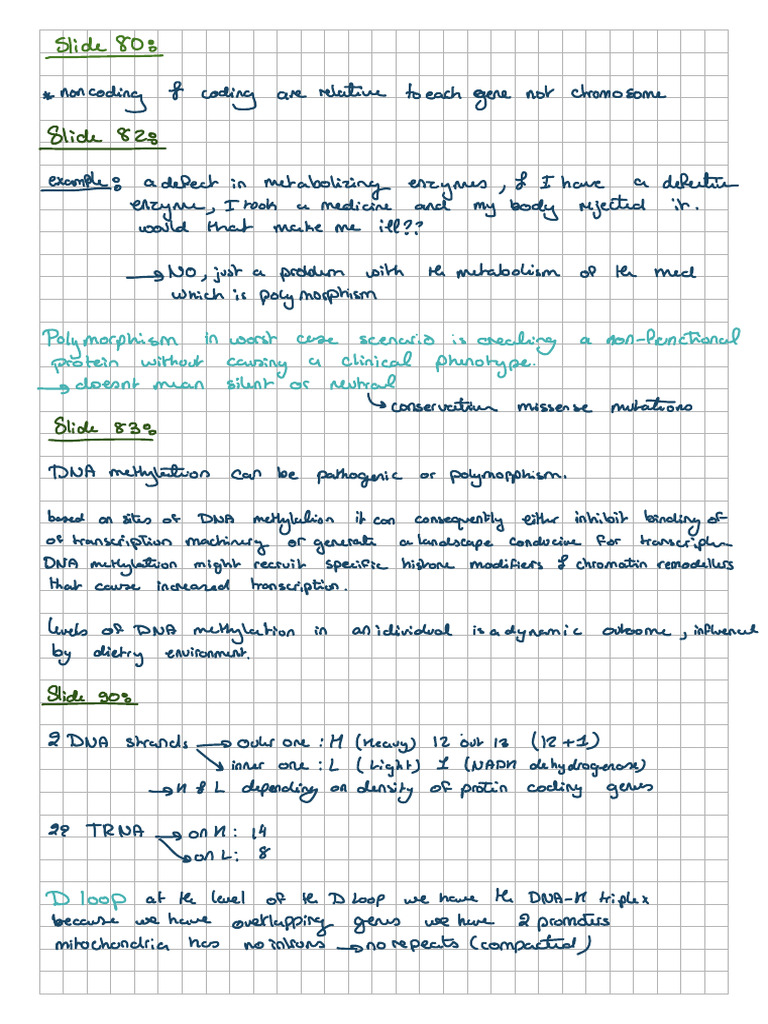 Slide 80:
* noncoding & coding are relative to each gene not chromosome
Slide 82:
example: a defect in metabolizing enzymes, & I have a defective
enzyme, I took a medicine and my body rejected it.
would that make me ill??
→ NO, just a problem with the metabolism of the med
which is polymorphism
Polymorphism in worst case scenario is creating a non-functional
protein without causing a clinical phenotype.
→ doesnt mean silent or neutral
↳ conservative missense mutations
Slide 83:
DNA methylation can be pathogenic or polymorphism.
based on sites of DNA methylation it can consequently either inhibit binding of
of transcription machinery or generate a landscape conducive for transcription
DNA methylation might recruit specific histone modifiers & chromatin remodellers
that cause increased transcription.
levels of DNA methylation in an idividual is a dynamic outcome, influenced
by dietry environment.
Slide 90:
2 DNA strands → outer one: H (Heavy) 12 out 13 (12+1)
→ inner one: L (Light) 1 (NADH dehydrogenase)
→ H & L depending on density of protin coding genes
22 TRNA → on H: 14
→ on L: 8
D loop at the level of the D loop we have the DNA-H triplex
because we have overlapping genes we have 2 promoters
mitochondria has no introns → no repeats (compacted)